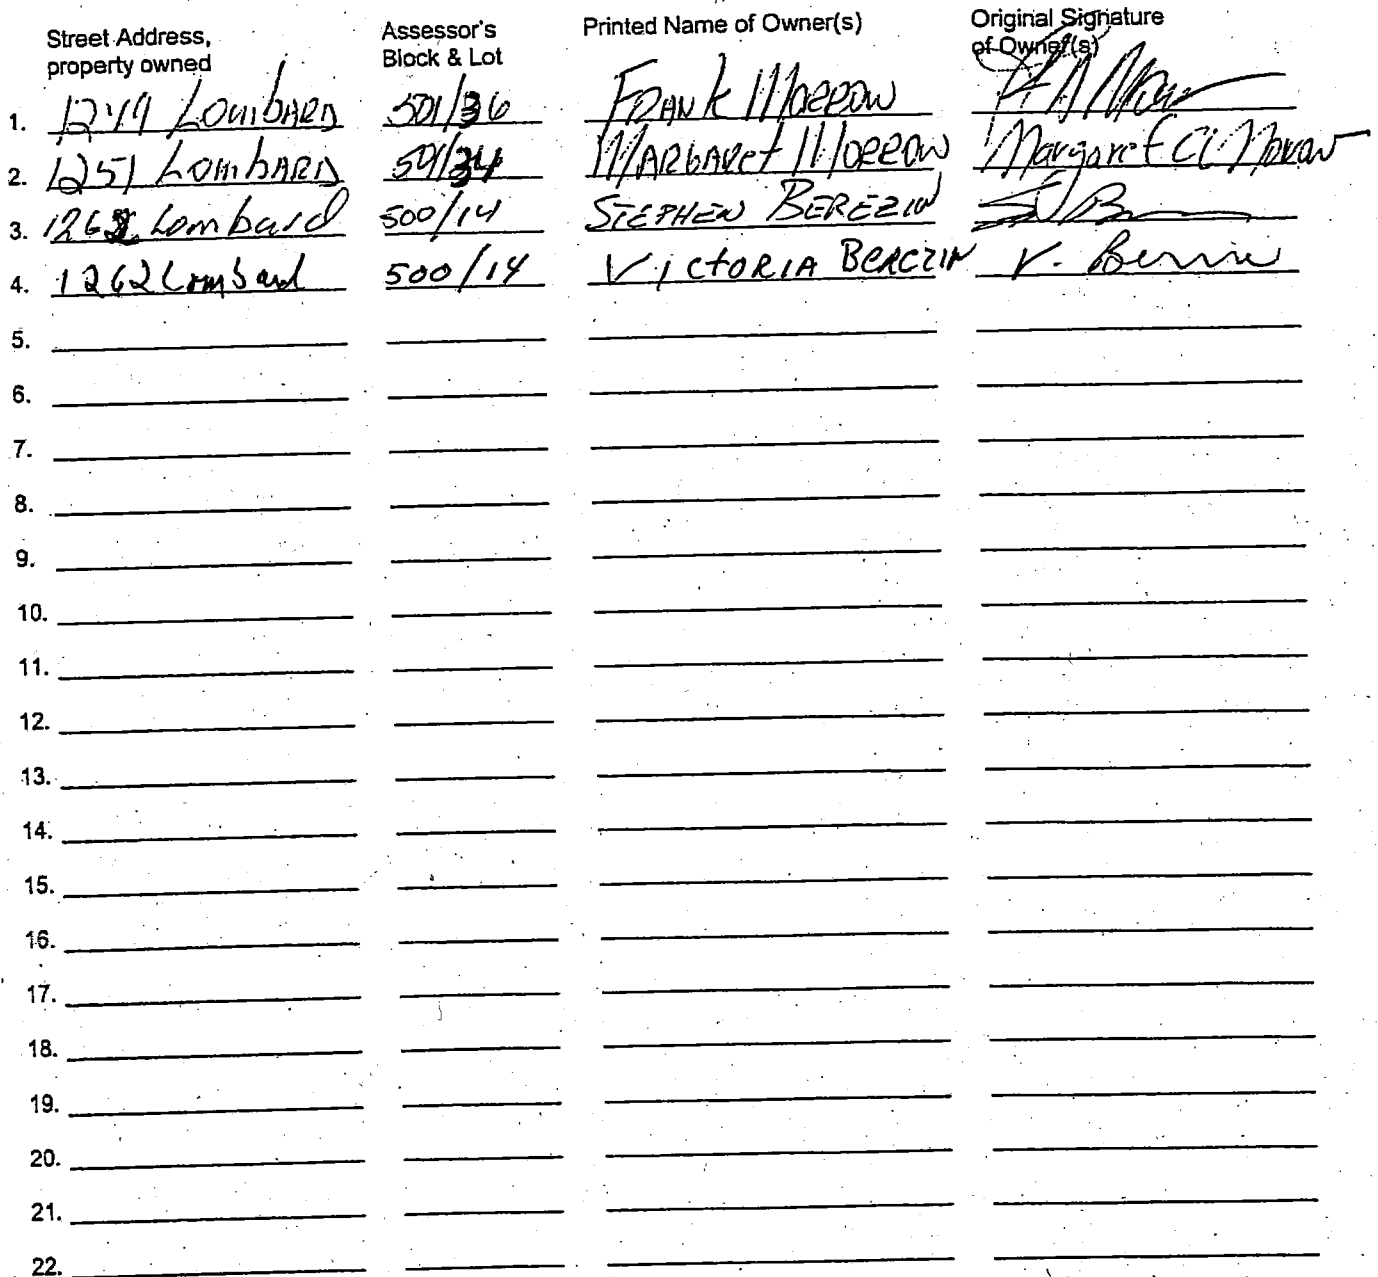 Street Address, property owned Assessor's Block & Lot Printed Name of Owner(s) Original Signature of Owner(s)
1. 1249 LombARD 501/36 FRANK MORROW
2. 1251 LombARD 501/34 MARGARET MORROW Margaret C Morrow
3. 1262 Lombard 500/14 STEPHEN BEREZIN
4. 1262 Lombard 500/14 VICTORIA BEREZIN V.
5.
6.
7.
8.
9.
10.
11.
12.
13.
14.
15.
16.
17.
18.
19.
20.
21.
22.